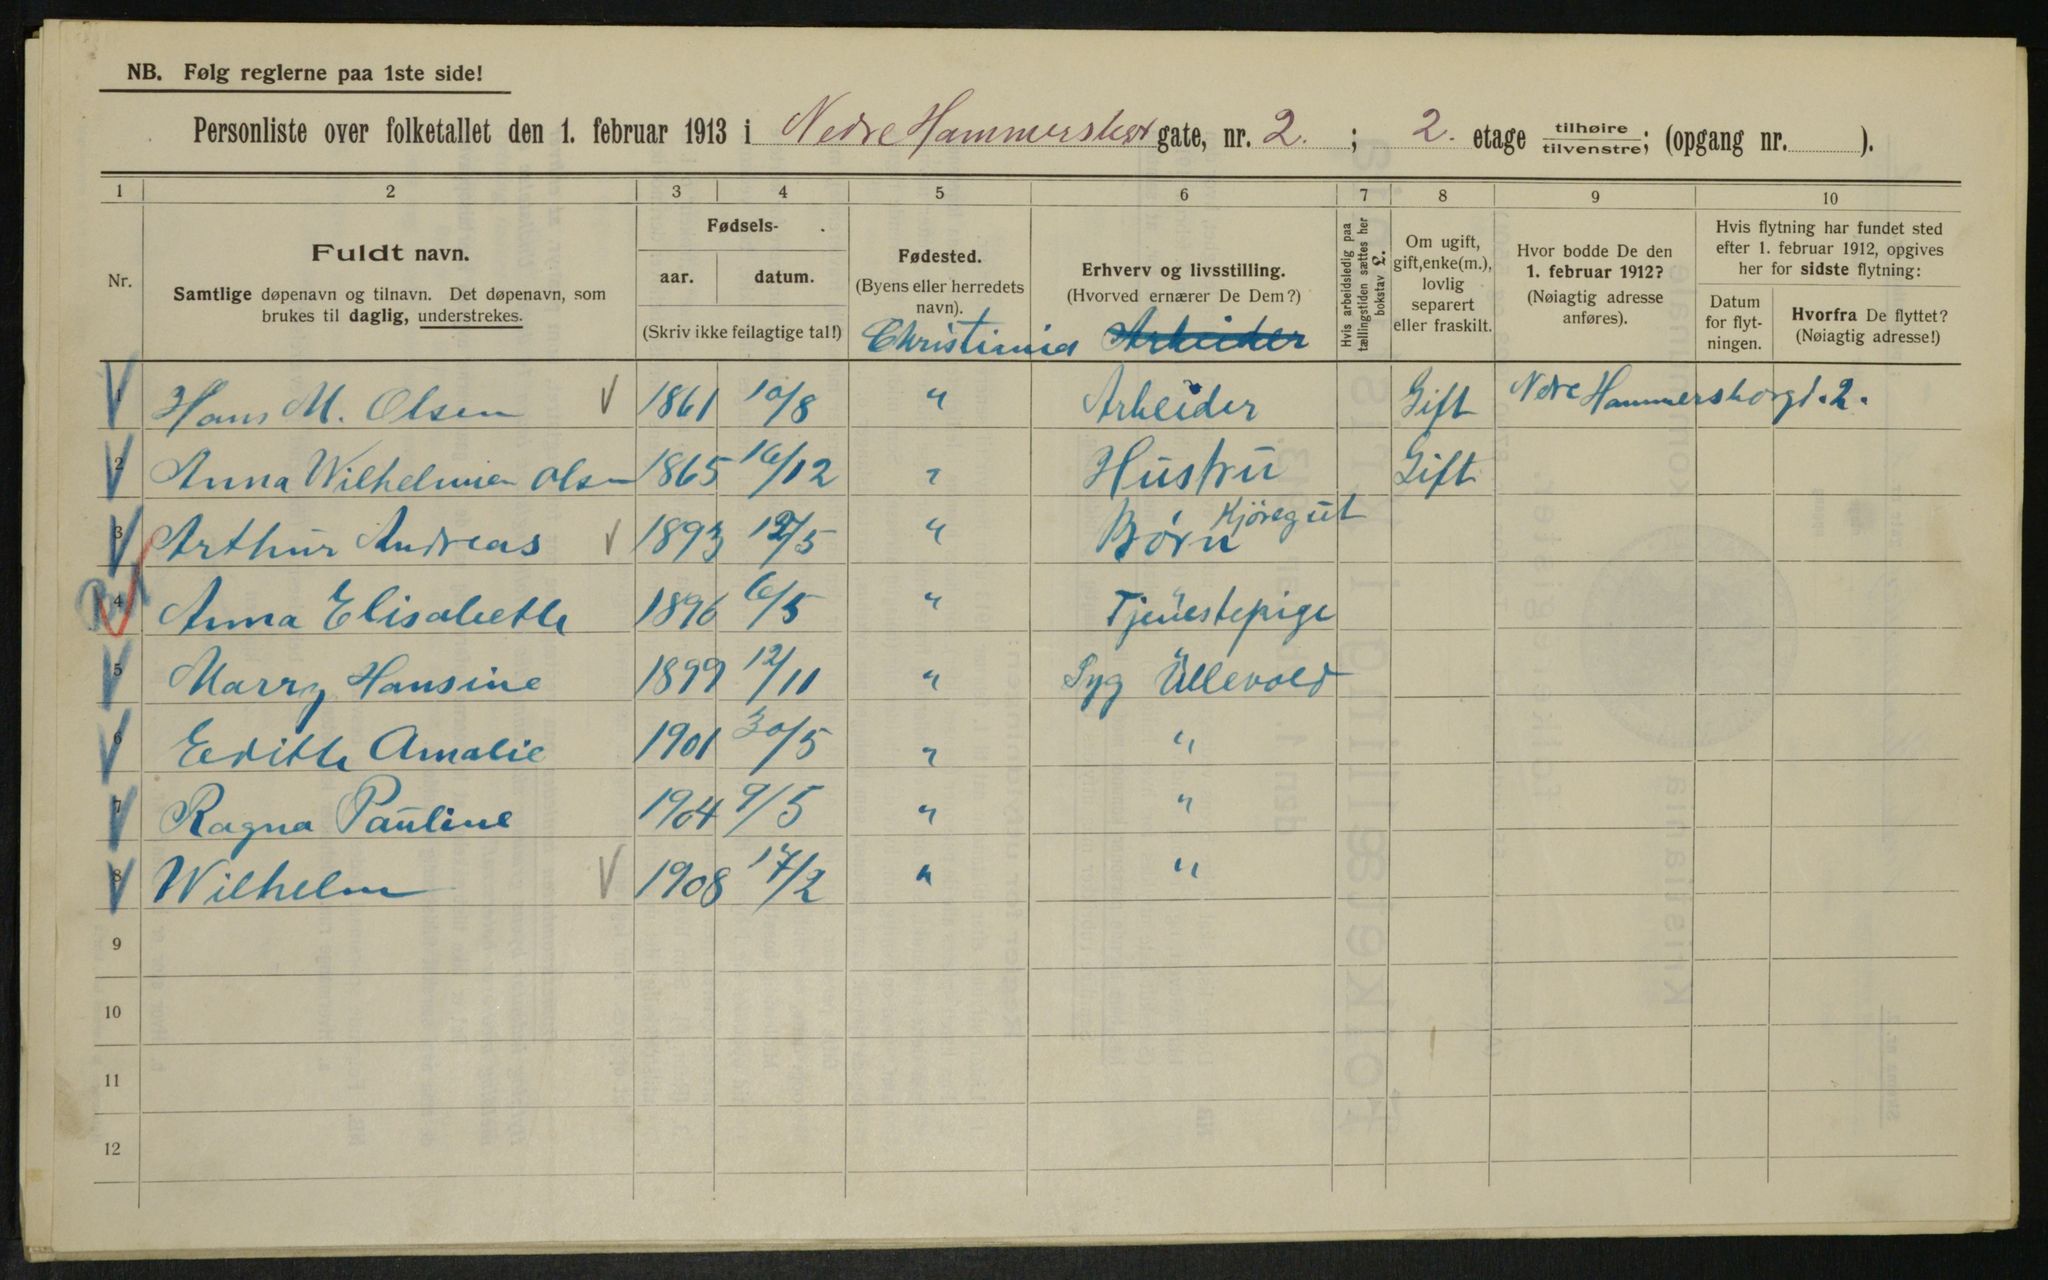 NB. Følg reglerne paa 1ste side!
Personliste over folketallet den 1. februar 1913 i Nedre Hammersborg gate, nr. 2. ; 2. etage tilhøire tilvenstre; (opgang nr. ).
1 2 3 4 5 6 7 8 9 10
Nr.
Fuldt navn.
Samtlige døpenavn og tilnavn. Det døpenavn, som
brukes til daglig, understrekes.
Fødsels-
aar. datum.
(Skriv ikke feilagtige tal!)
Fødested.
(Byens eller herredets
navn).
Christiania
Erhverv og livsstilling.
(Hvorved ernærer De Dem?)
Arbeider
Hvis arbeidsledig paa
tællingstiden sættes her
bokstav L.
Om ugift,
gift, enke(m.),
lovlig
separert
eller fraskilt.
Hvor bodde De den
1. februar 1912?
(Nøiagtig adresse
anføres).
Hvis flytning har fundet sted
efter 1. februar 1912, opgives
her for sidste flytning:
Datum
for flyt-
ningen.
Hvorfra De flyttet?
(Nøiagtig adresse!)
1 Hans M. Olsen 1861 10/8 " Arbeider Gift Nedre Hammersborgd. 2.
2 Anna Wilhelmien Olsen 1865 16/12 " Hustru Gift
3 Arthur Andreas 1893 12/5 " Børn Kjöregut
4 Anna Elisabeth 1896 6/5 " Tjenestepige
5 Marry Hansine 1899 12/11 " Syg Üllevold
6 Edith Amalie 1901 30/5 " "
7 Ragna Pauline 1904 9/5 " "
8 Wilhelm 1908 17/2 " "
9
10
11
12